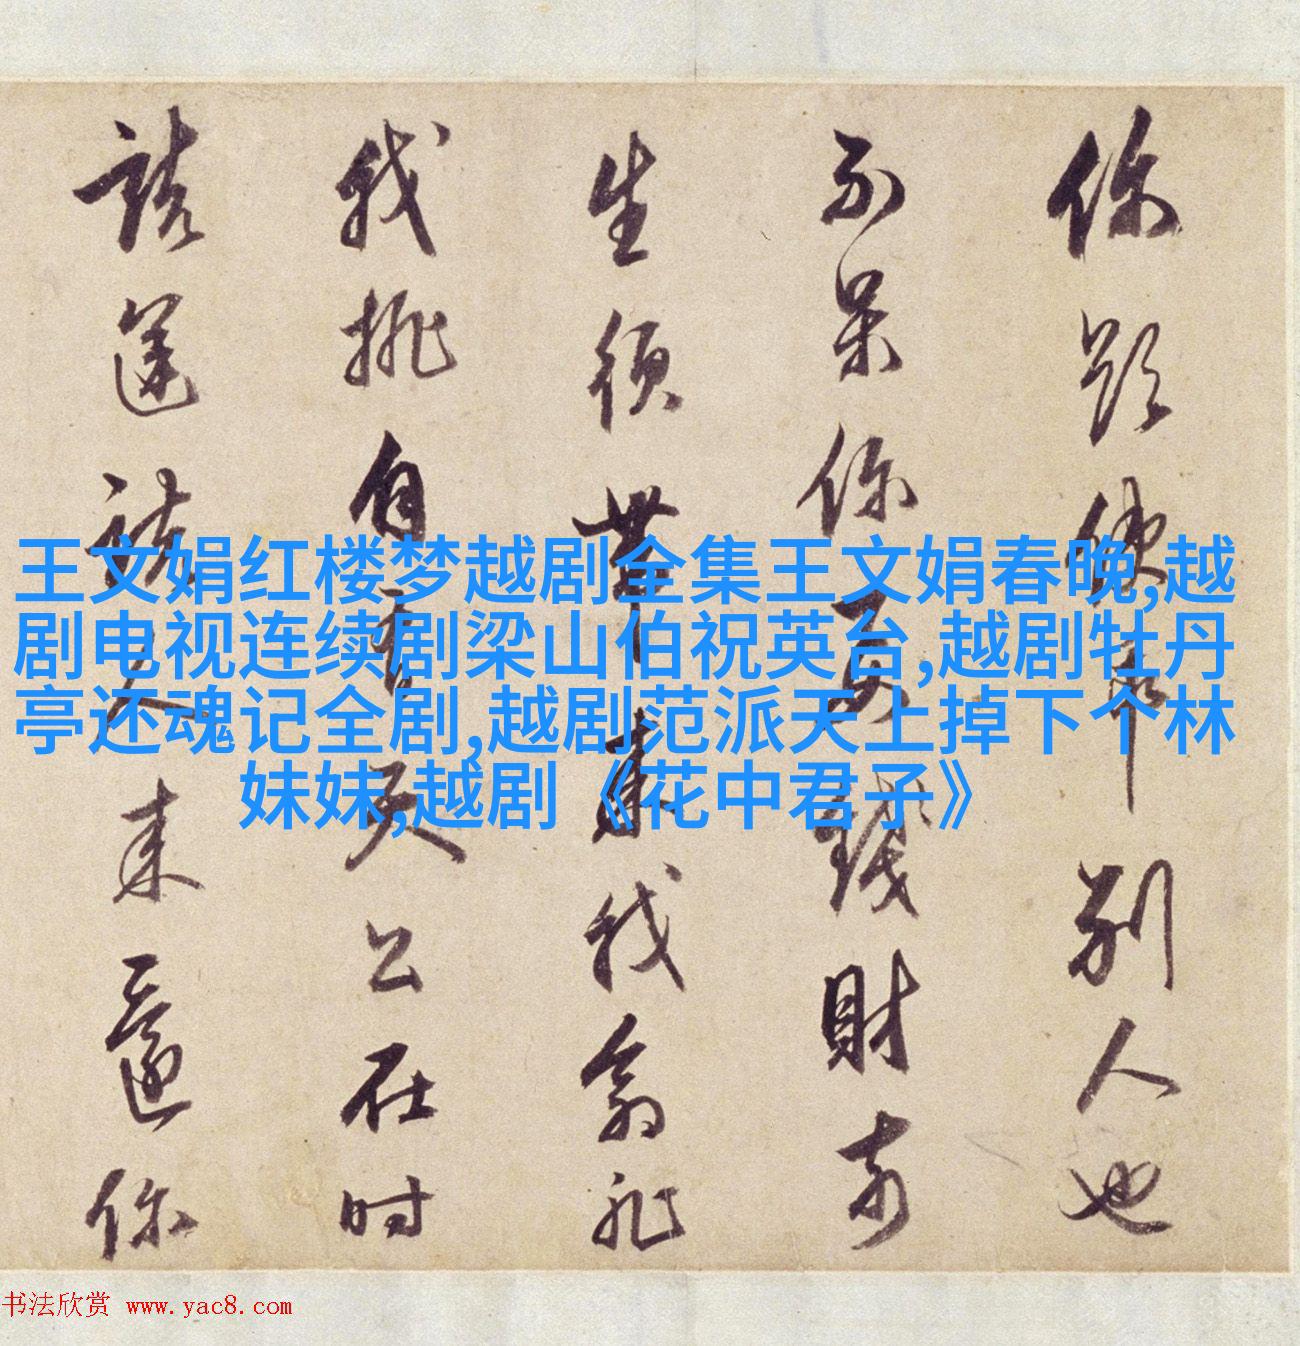 王文娟红楼梦越剧全集王文娟春晚,越
剧电视连续剧梁山伯祝英台,越剧牡丹
亭还魂记全剧,越剧范派天上掉下个林
妹妹,越剧《花中君子》
你 別人也
你 錢財
生須帶来我
我挑自有天公在时
人来還你
书法欣赏 www.yac8.com